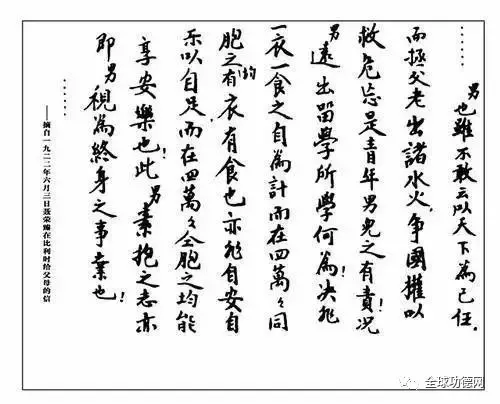 ……
男也雖不敢云以天下為己任,
而拯父老出諸水火,争國權以
救危亡是青年男兒之有責!況
男遠出留學所學何為!决非
一衣一食之自為計而在四萬々同
胞之均有衣有食也亦非自安自
乐以自足而在四萬々仝胞之均能
享安樂也此男素抱之志亦
即男視為終身之事業也!
……
——摘自一九二二年六月三日聂荣臻在比利时给父母的信
全球功德网